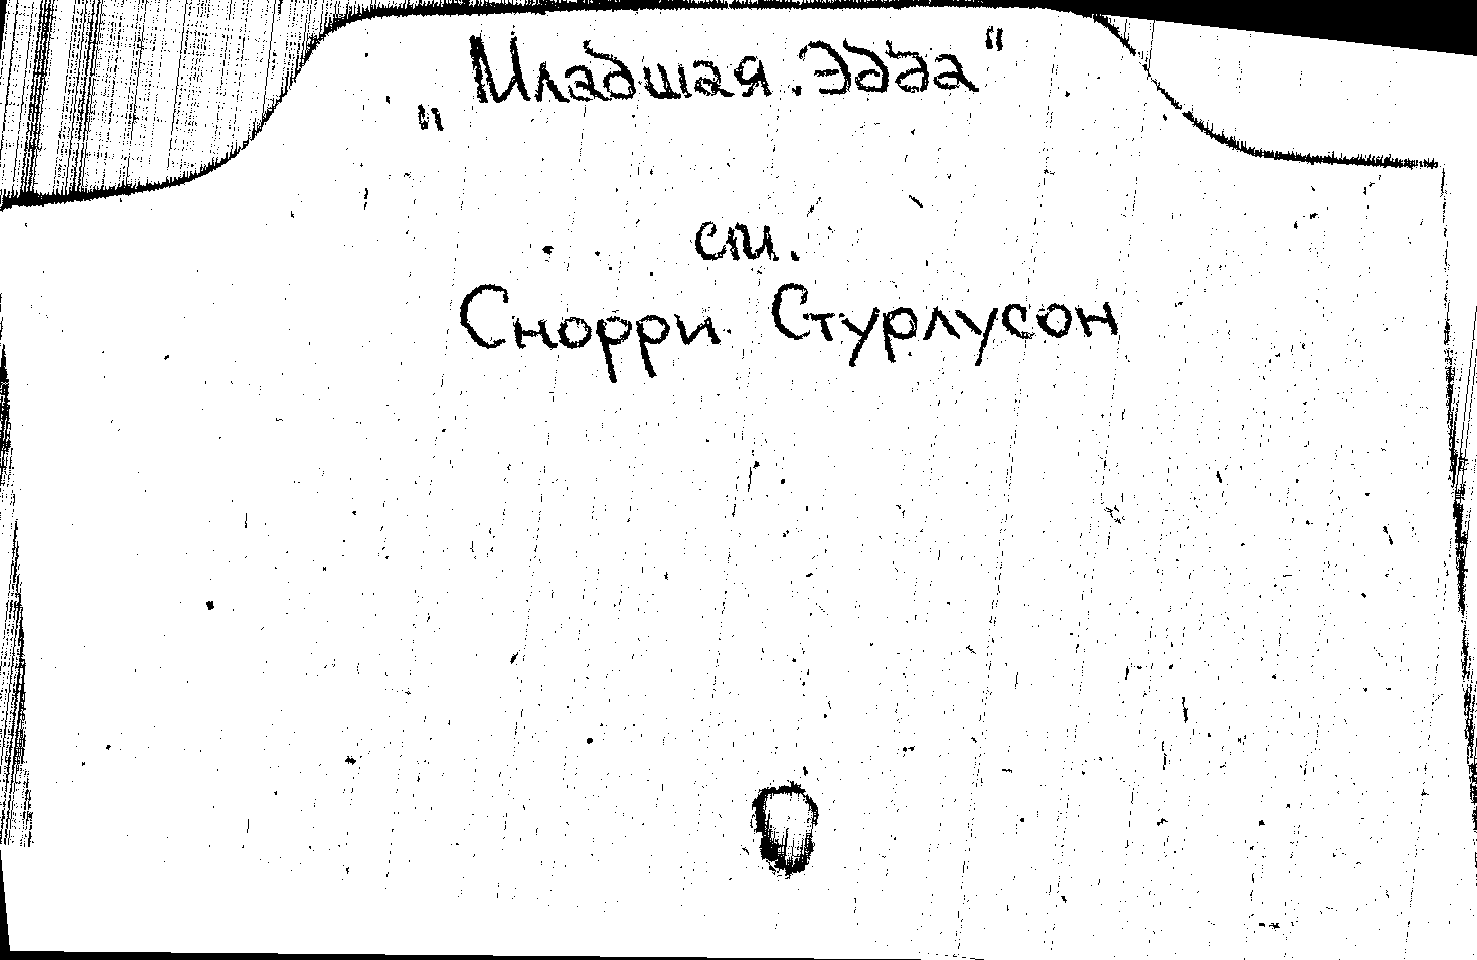 „Младшая Эдда“
см.
Снорри Стурлусон